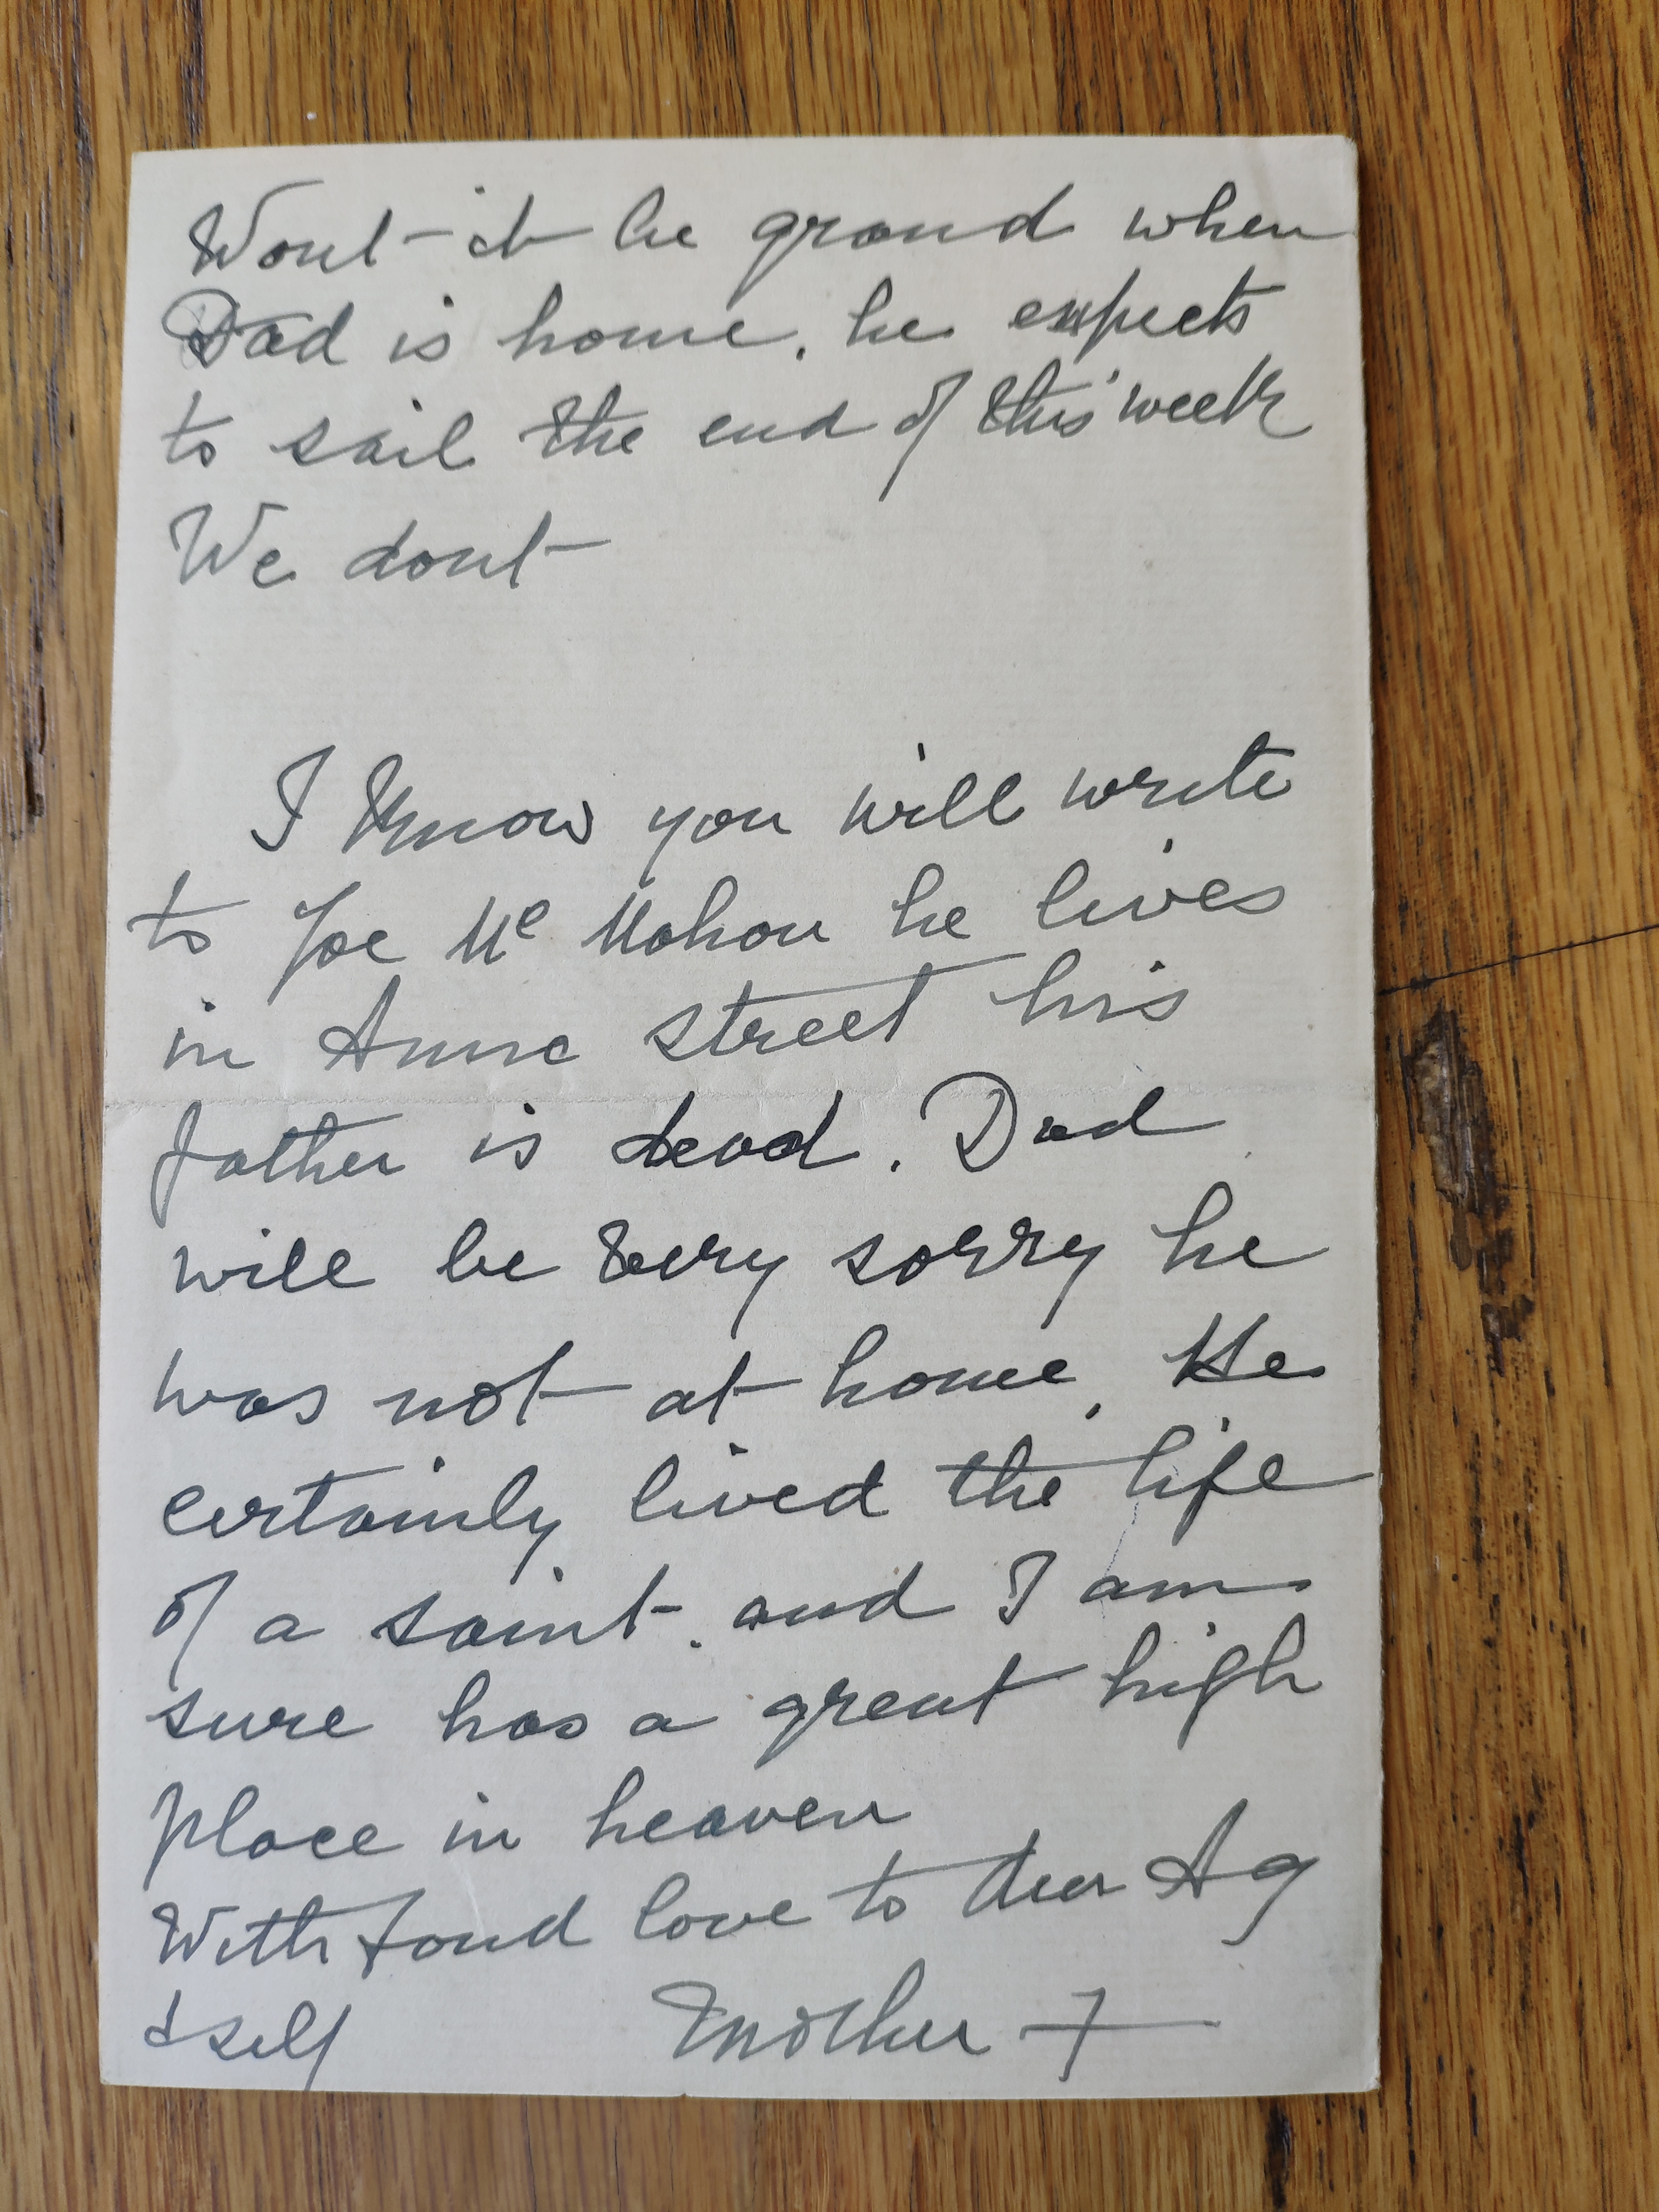 Wont it be grand when
Dad is home, he expects
to sail the end of this week
We dont
I know you will write
to Joe Mc Mahon he lives
in Anne street his
father is dead. Dad
will be very sorry he
was not at home, He
certainly lived the life
of a saint. and I am
sure has a great high
place in heaven
With fond love to dear Ag
& self Mother +